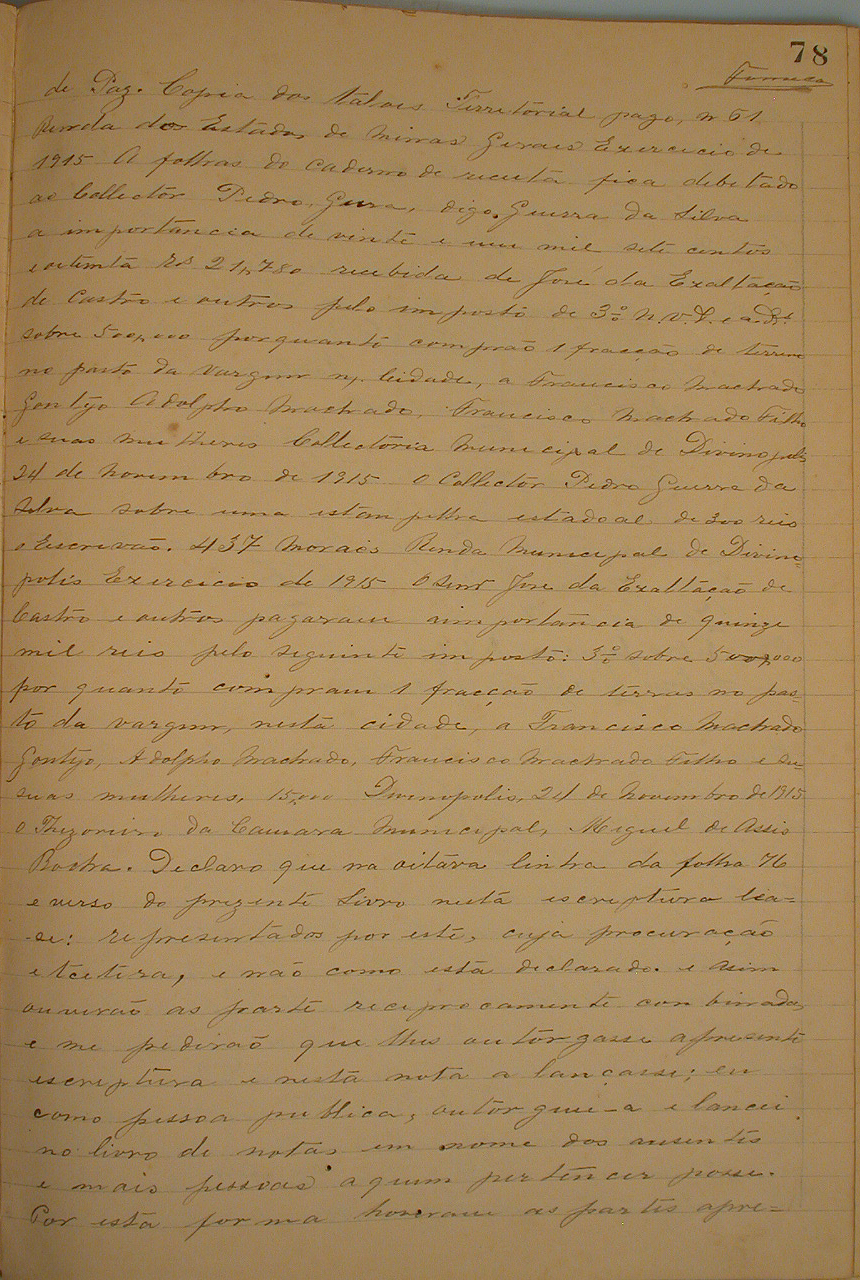 78
Fonseca
de Paz. Copia dos talaes Territorial pago, n 61
Renda dos Estados de Minas Geraes Exercicio de
1915 A folhas do caderno de receita fica debitado
ao Collector Pedro Gura, digo, Guerra da Silva
a importancia de vinte e um mil sete centos
e oitenta rs 21,780 recebida de José da Exaltação
de Castro e outros pelo imposto de 3% n. v. e
sobre 500,000 porquanto comprão 1 fracção de terreno
no pasto da Vargem n. Cidade, a Francisco Machado
Gontijo Adolpho Machado, Francisco Machado Filho
e suas mulheres Collectoria Municipal de Divinopolis
24 de Novembro de 1915 O Collector Pedro Guerra da
Silva sobre uma estampilha estadoal de 300 reis
o Escrivão. 437 Moraes Renda Municipal de Divino-
polis Exercicio de 1915 O Senr José da Exaltação de
Castro e outros pagaram a importancia de quinze
mil reis pelo seguinte imposto: 3% sobre 500,000
por quanto compram 1 fracção de terras no pas-
to da vargem, nesta cidade, a Francisco Machado
Gontijo, Adolpho Machado, Francisco Machado Filho e su-
suas mulheres, 15,000 Divinopolis, 24 de Novembro de 1915
O Thezoreiro da Camara Municipal, Miguel de Assis
Rocha. Declaro que na oitava linha da folha 76
e verso do prezente Livro nesta escriptura leia-
-se: representados por este, cuja procuração
etcetera, e não como está declarado. e asim
ouverão as parte reciprocamente combinadas
e me pedirão que lhes outorgasse apresente
escriptura e nesta nota a lançasse; eu
como pessoa publica, outorguei-a e lancei
no livro de notas em nome dos ausentes
e mais pessoas a quem pertencer posse.
Por esta forma houveram as partes apre=